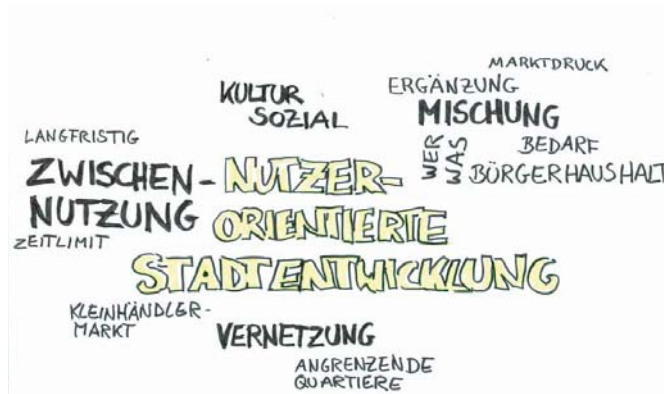 MARKTDRUCK
KULTUR
SOZIAL
ERGÄNZUNG
MISCHUNG
LANGFRISTIG
WER
WAS
BEDARF
BÜRGERHAUSHALT
ZWISCHEN-
NUTZUNG
ZEITLIMIT
NUTZER-
ORIENTIERTE
STADTENTWICKLUNG
KLEINHÄNDLER-
MARKT
VERNETZUNG
ANGRENZENDE
QUARTIERE